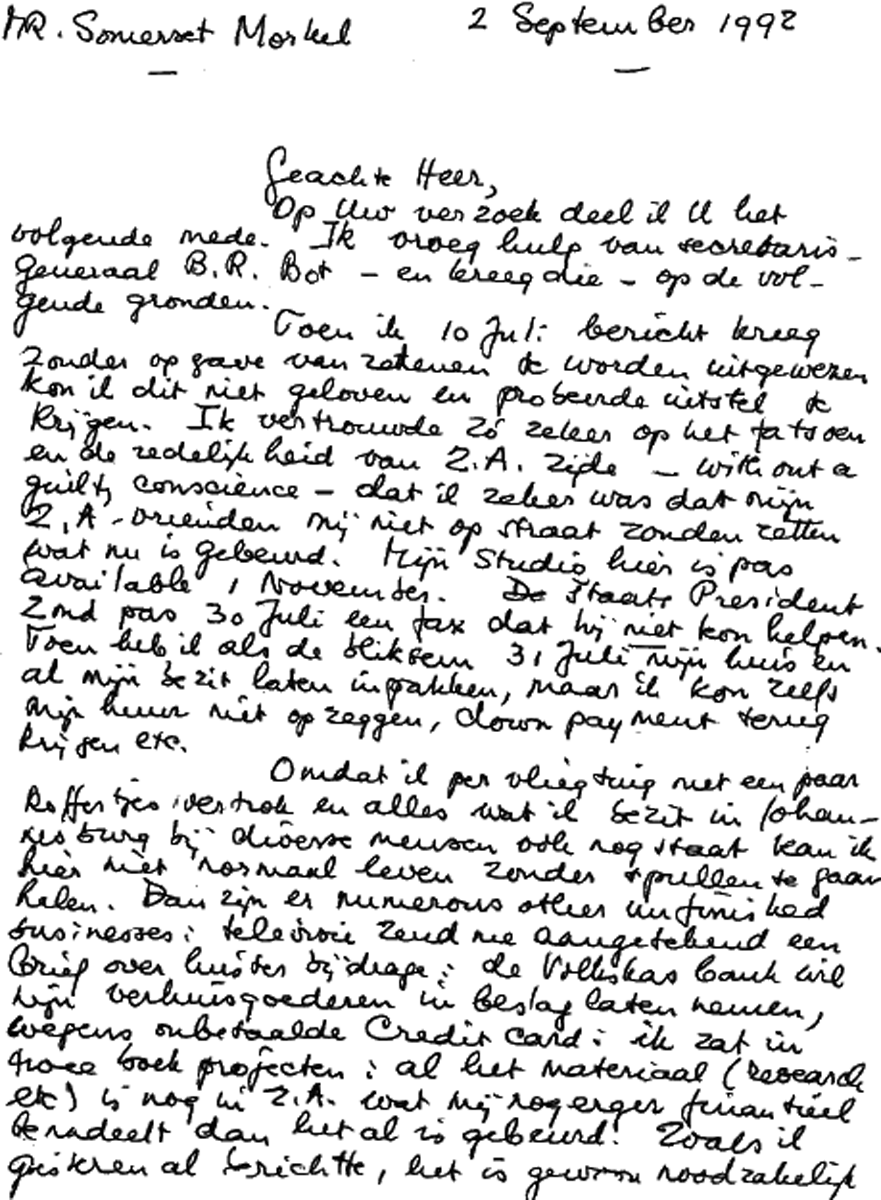 MR. Somerset Morkel 2 September 1992
Geachte Heer,
Op Uw verzoek deel ik U het
volgende mede. Ik vroeg hulp van secretaris-
Generaal B.R. Bot - en kreeg die - op de vol-
gende gronden.
Toen ik 10 Juli bericht kreeg
zonder opgave van redenen te worden uitgewezen
kon ik dit niet geloven en probeerde uitstel te
krijgen. Ik vertrouwde zó zeker op het fatsoen
en de redelijkheid van Z.A. zijde - without a
guilty conscience - dat ik zeker was dat mijn
Z.A. vrienden mij niet op straat zouden zetten
wat nu is gebeurd. Mijn Studio hier is pas
available 1 November. De Staats President
zond pas 30 Juli een fax dat hij niet kon helpen.
Toen heb ik als de bliksem 31 Juli mijn huis en
al mijn bezit laten inpakken, maar ik kon zelfs
mijn huur niet opzeggen, down payment terug
krijgen etc.
Omdat ik per vliegtuig met een paar
koffertjes vertrok en alles wat ik bezit in Johan-
nesburg bij diverse mensen ook nog staat kan ik
hier niet normaal leven zonder spullen te gaan
halen. Dan zijn er numerous other unfinished
businesses: televisie zend me aangetekend een
brief over luister bijdrage: de Volkskas bank wil
mijn verhuisgoederen in beslag laten nemen,
wegens onbetaalde Credit card: ik zat in
twee boek projecten: al het materiaal (research
etc) is nog in Z.A. wat mij nog erger financieel
benadeelt dan het al is gebeurd. Zoals ik
gisteren al berichtte, het is gewoon noodzakelijk